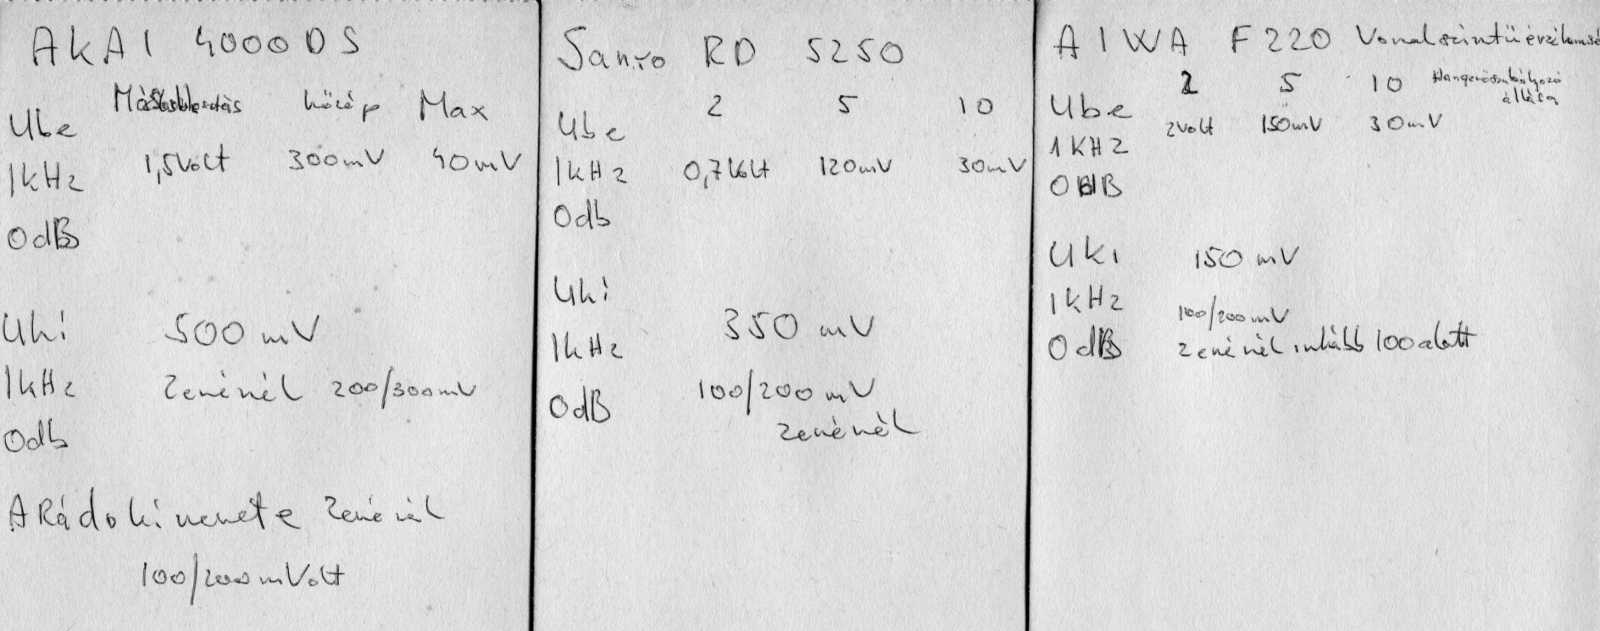 AKAI 4000DS
közép Max
Ube
1,5Volt 300mV 40mV
1kHz
0dB
Uki 500mV
1kHz Zenénél 200/300mV
0db
A Rádo kimenete Zenénél
100/200mVolt
Sanyo RD 5250
2 5 10
Ube
1kHz 0,7Volt 120mV 30mV
0db
Uki
350 mV
1kHz
100/200 mV
0dB
Zenénél
AIWA F220 Vonalszintű érzékenység
2 5 10 Hangerőszabályozó
állása
Ube
2Volt 150mV 30mV
1KHz
0dB
Uki 150 mV
1kHz
100/200mV
0dB Zenénél inkább 100 alatt